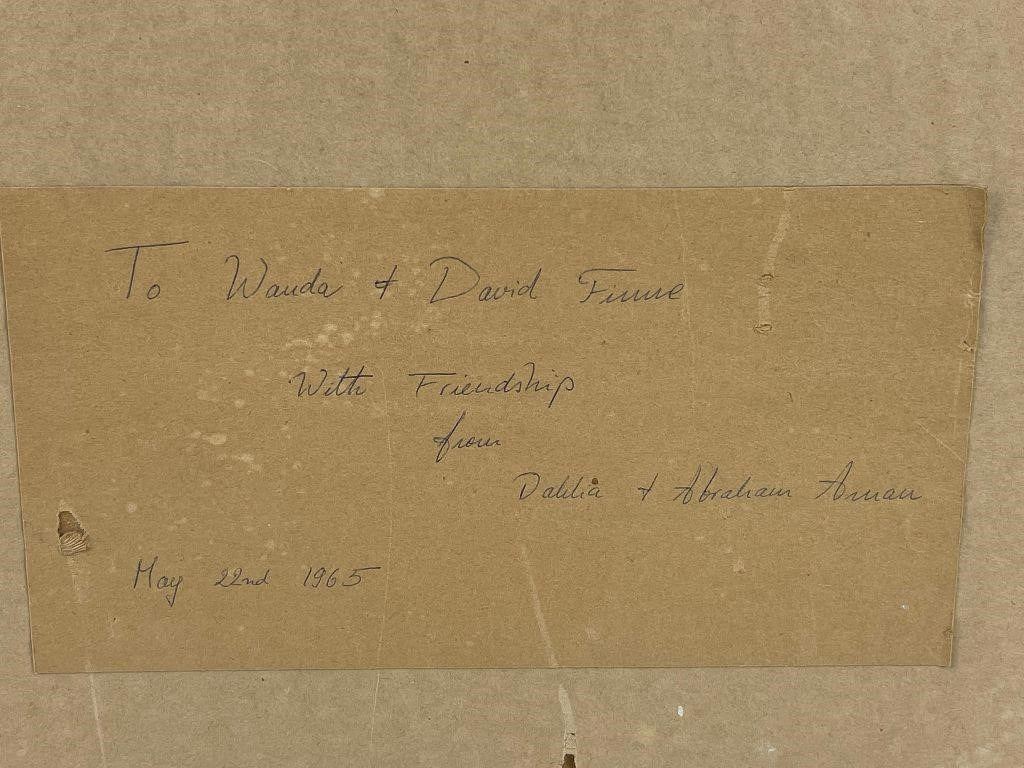 To Wanda & David Finne
With Friendship
from
Dahlia & Abraham Aman
May 22nd 1965